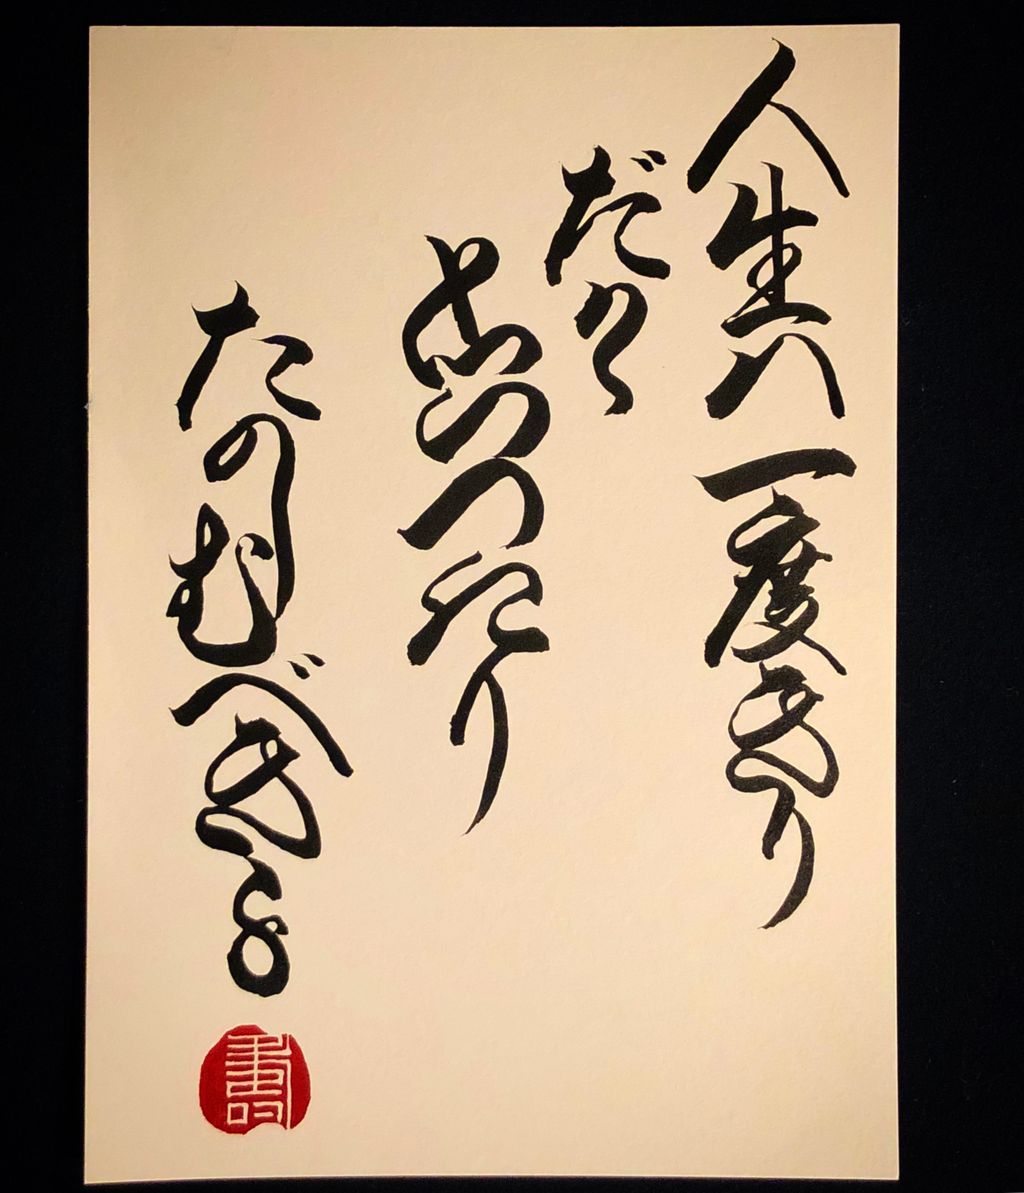 人生ハ一度きり
だから
いつきり
たのしむべき